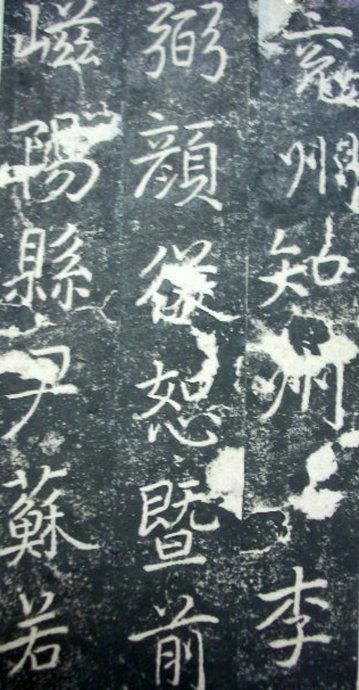 兗州知州李
弼顏從恕暨前
嵫陽縣尹蘇若